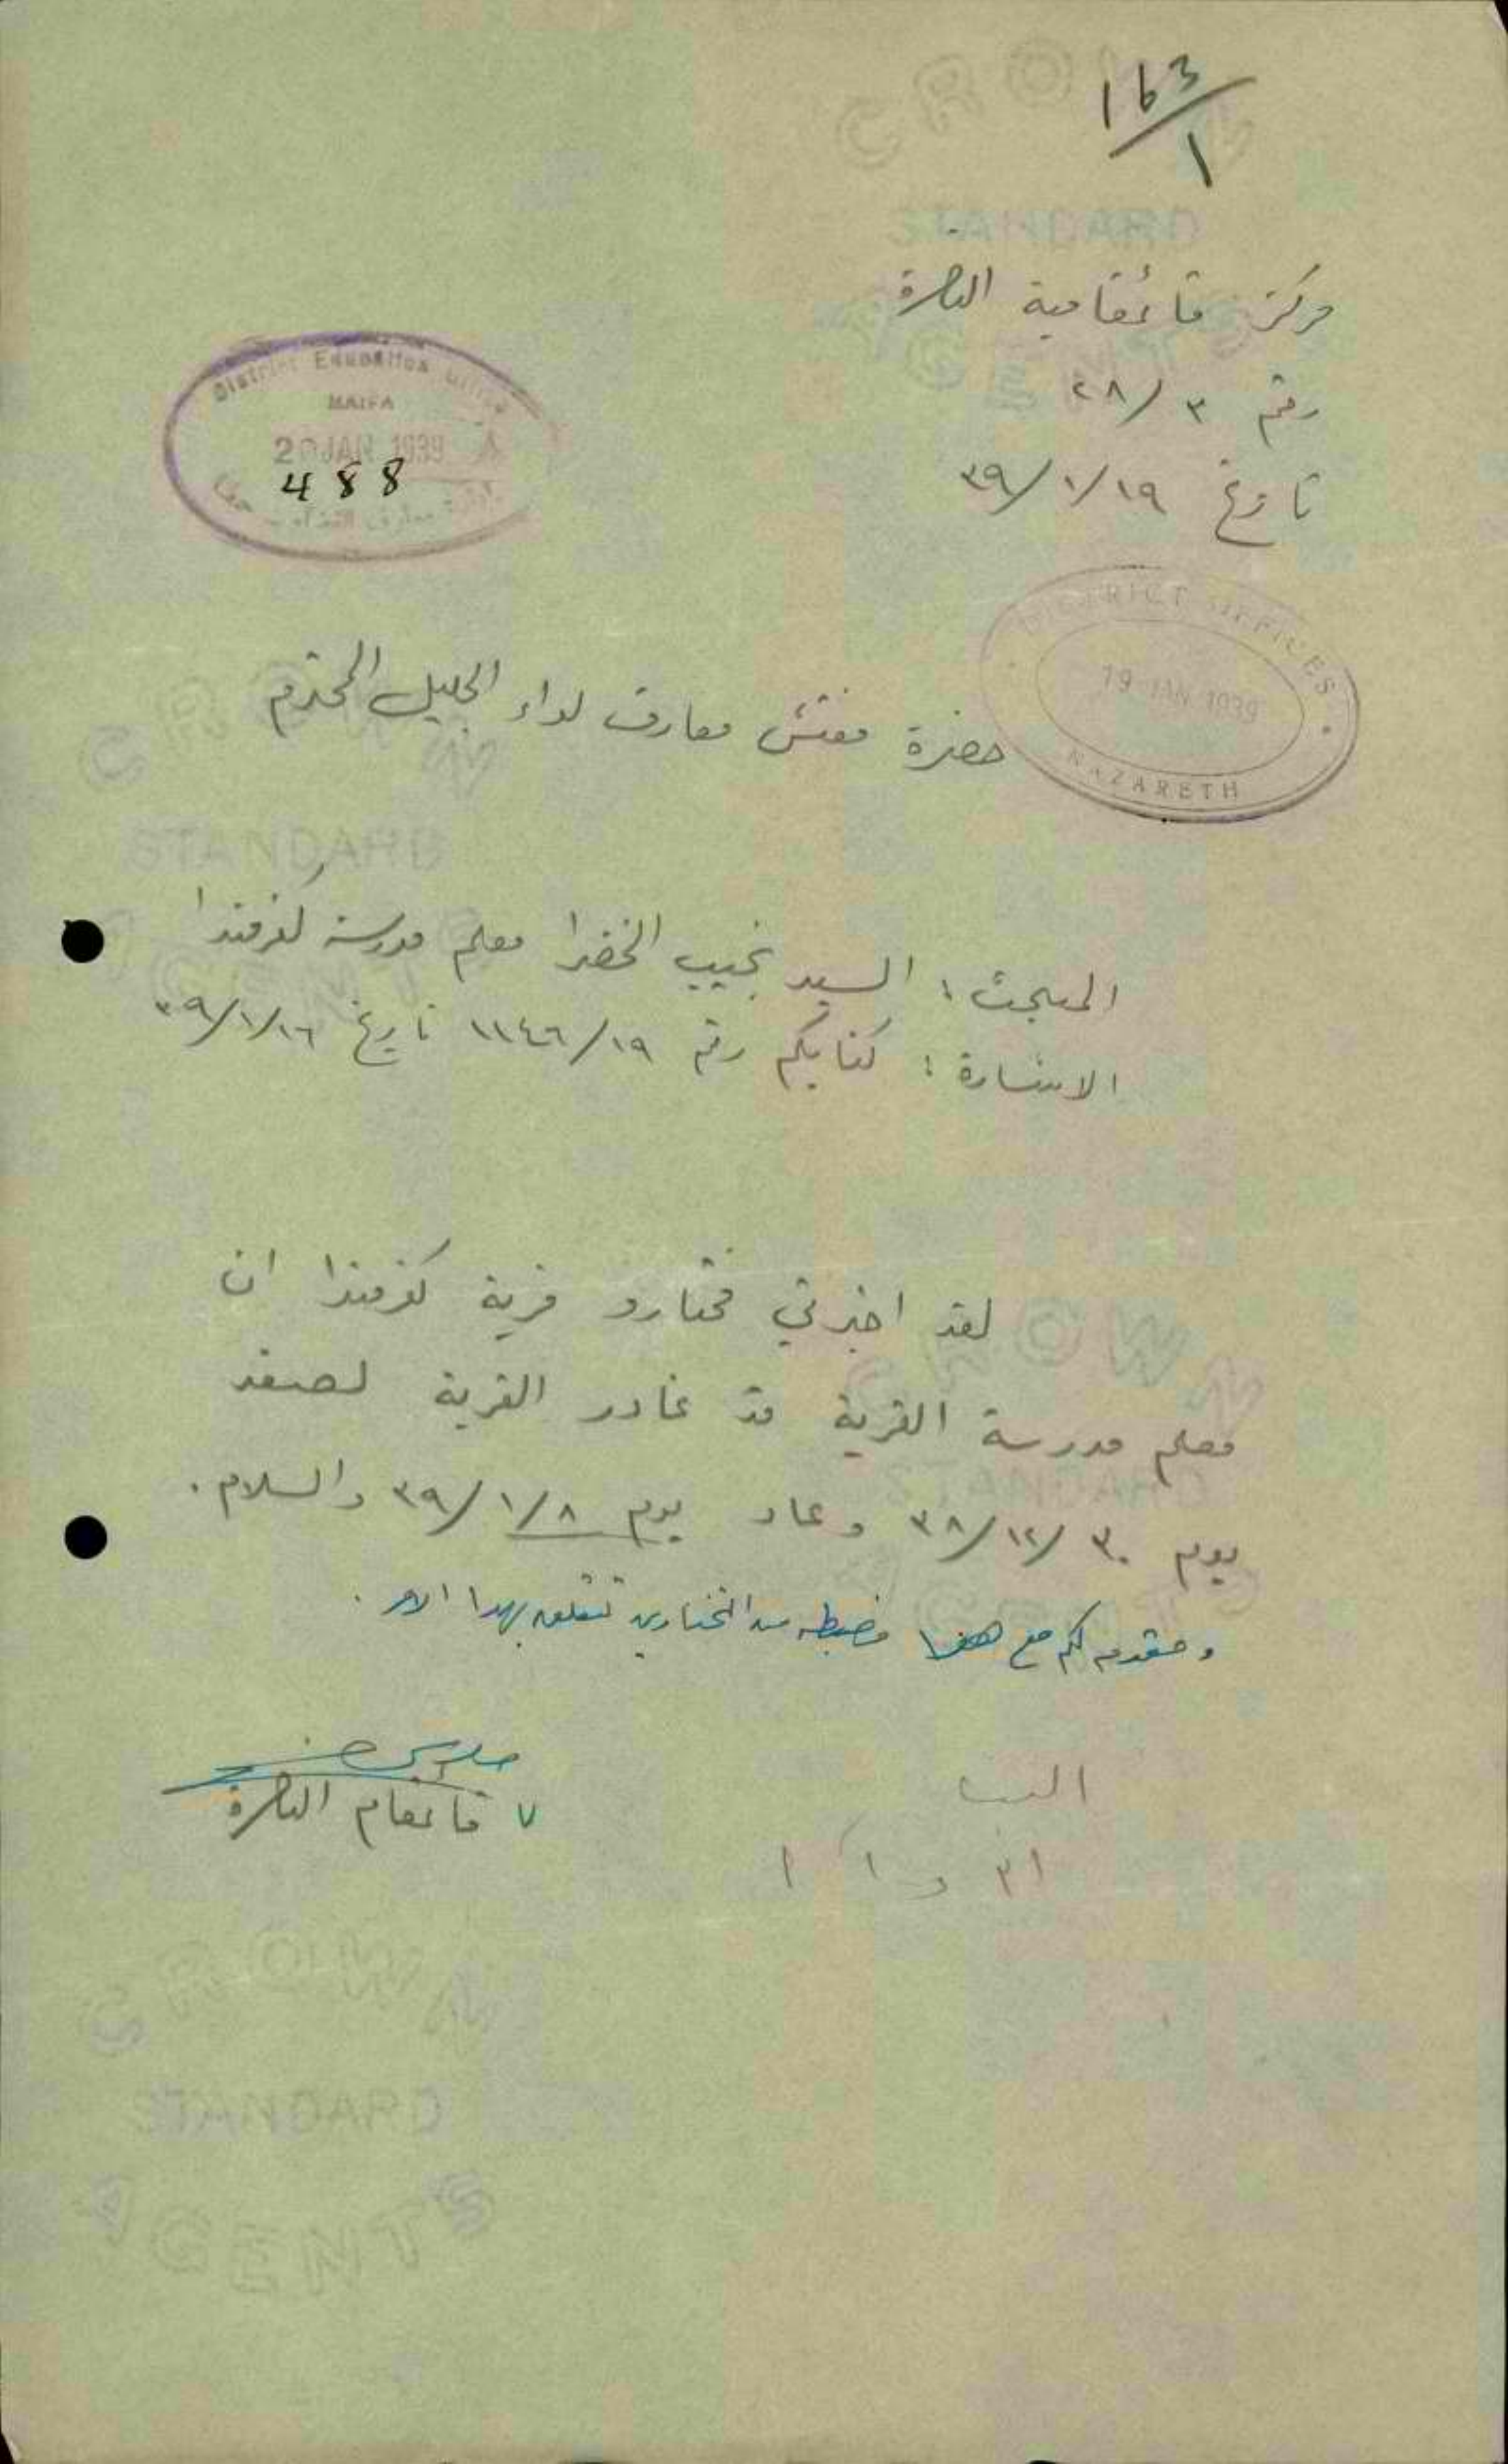 163/1
مركز قائمقامية الناصرة
رقم ٣/٢٨
تاريخ ٣٩/١/١٩
District Education Office
HAIFA
20 JAN 1939
488
DISTRICT OFFICES
19 JAN 1939
NAZARETH
حضرة مفتش معارف لواء الجليل المحترم
المبحث : السيد نجيب الخضرا معلم مدرسة كفرمندا
الاشارة : كتابكم رقم ١١٤٦/١٩ تاريخ ٣٩/١/١٦
لقد اخبرني مختارو قرية كفرمندا ان
معلم مدرسة القرية قد غادر القرية لصفد
يوم ٣٨/١٢/٣٠ وعاد يوم ٣٩/١/٨ والسلام .
ومقدم لكم مع هذا مضبطه من المختارين تتعلق بهذا الامر .
ع قائمقام الناصرة
CROWN
STANDARD
AGENTS